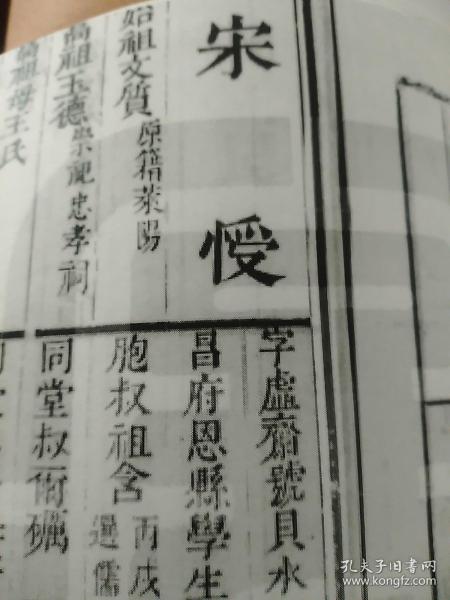 宋 慢
始祖文質 原籍萊陽
高祖玉德 崇祀忠孝祠
高祖母王氏
字虛齋號貝水
昌府恩縣學生
胞叔祖含 丙戌
選儒
同堂叔爾礪
孔夫子旧书网
www.kongfz.com